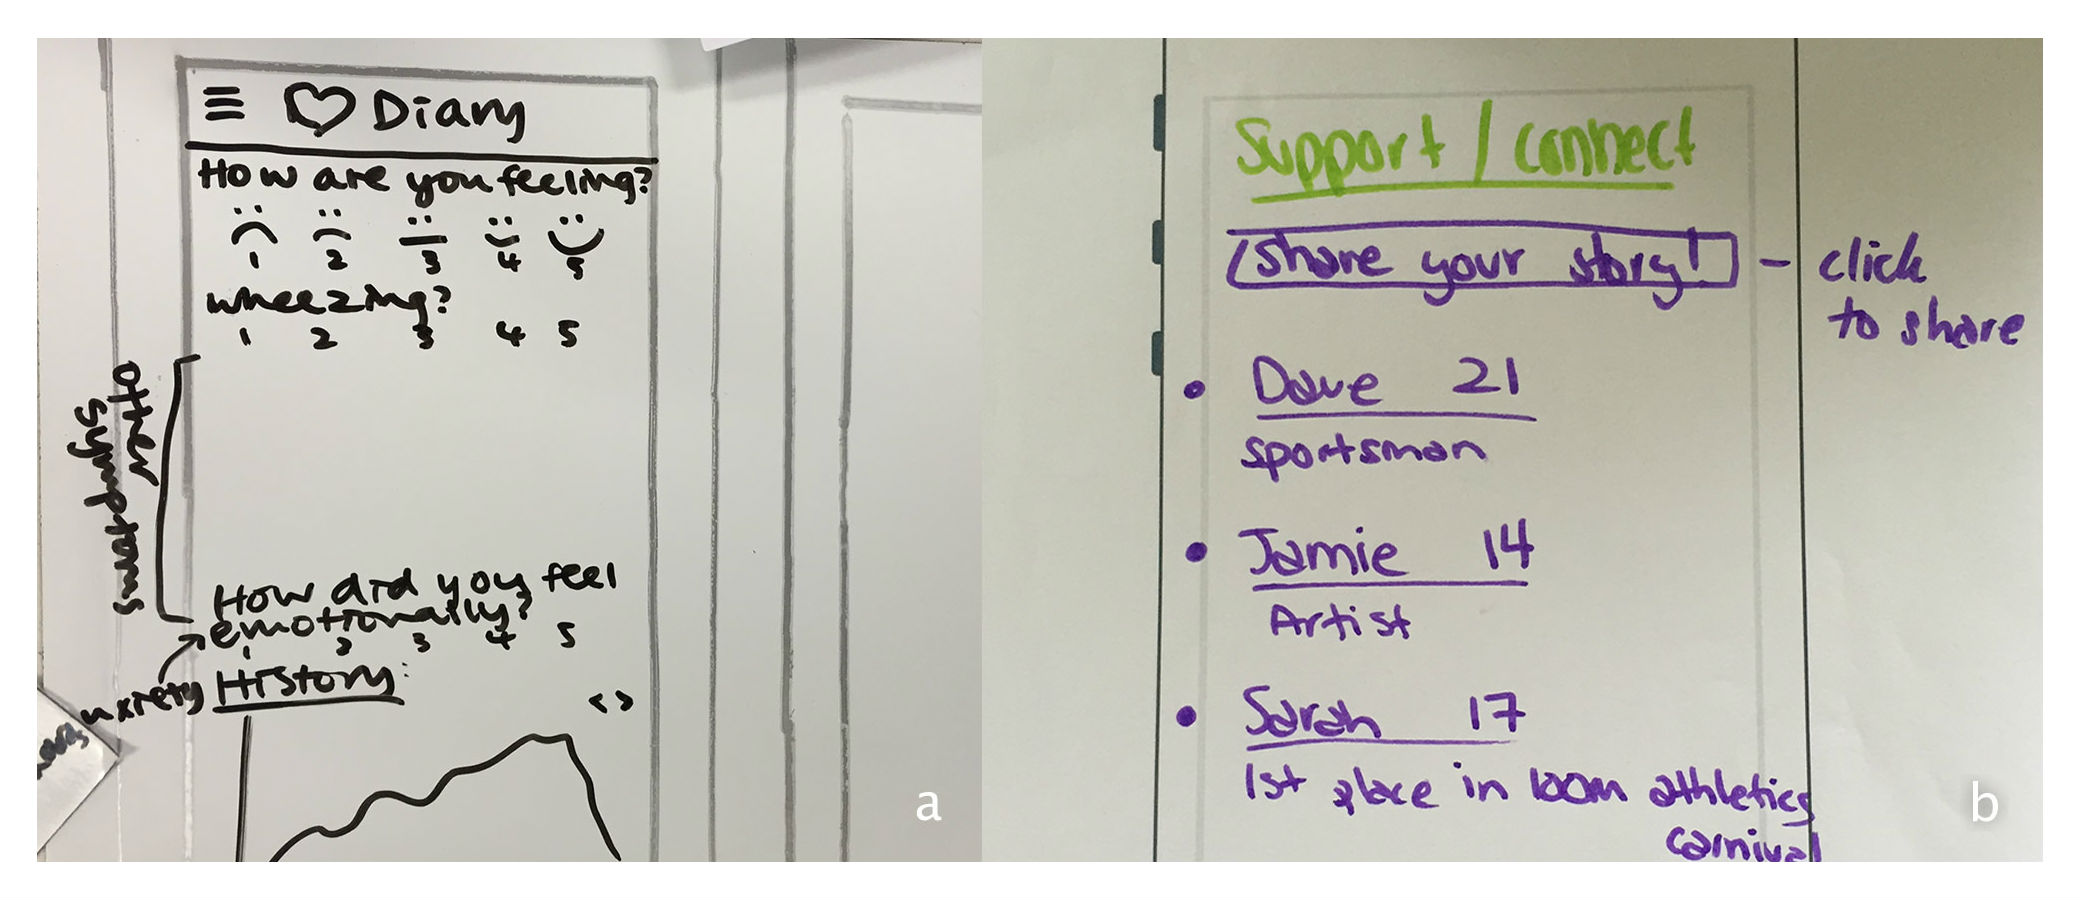 Diary
How are you feeling?
1 2 3 4 5
wheezing?
1 2 3 4 5
other
symptoms
How did you feel
emotionally?
1 2 3 4 5
History:
< >
a
Support / connect
Share your story!
- click
to share
• Dave 21
sportsman
• Jamie 14
Artist
• Sarah 17
1st place in 100m athletics
carnival
b